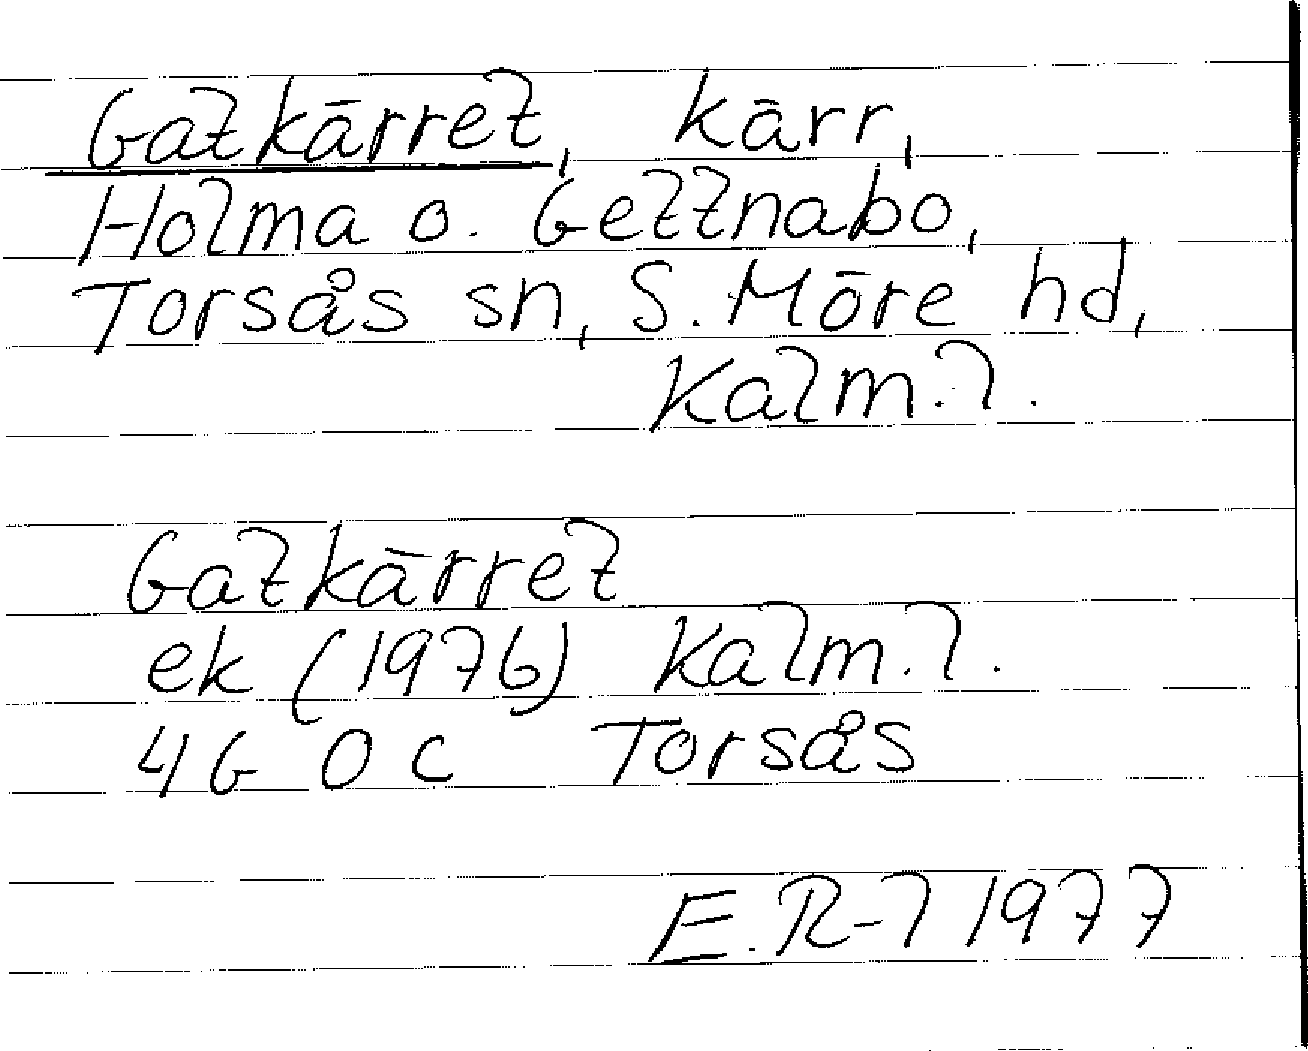 Gatkärret, kärr,
Holma o. Gettnabo,
Torsås sn, S. Möre hd,
Kalm. l.
Gatkärret
ek (1976) Kalm. l.
4G 0c Torsås
E.R-l 1977